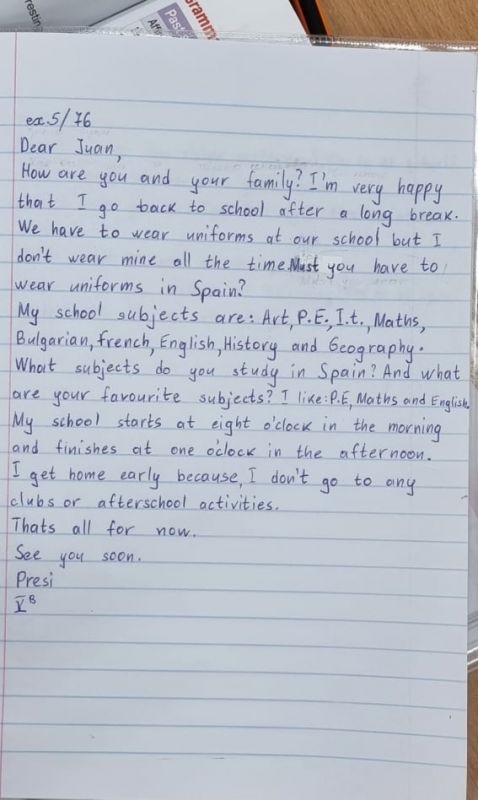 resting
Pas
Aff
gramm
ex.5/76
Dear Juan,
How are you and your family? I'm very happy
that I go back to school after a long break.
We have to wear uniforms at our school but I
don't wear mine all the time. Must you have to
wear uniforms in Spain?
My school subjects are: Art, P.E., I.t., Maths,
Bulgarian, french, English, History and Geography.
What subjects do you study in Spain? And what
are your favourite subjects? I like: P.E, Maths and English.
My school starts at eight o'clock in the morning
and finishes at one o'clock in the afternoon.
I get home early because, I don't go to any
clubs or afterschool activities.
Thats all for now.
See you soon.
Presi
V B